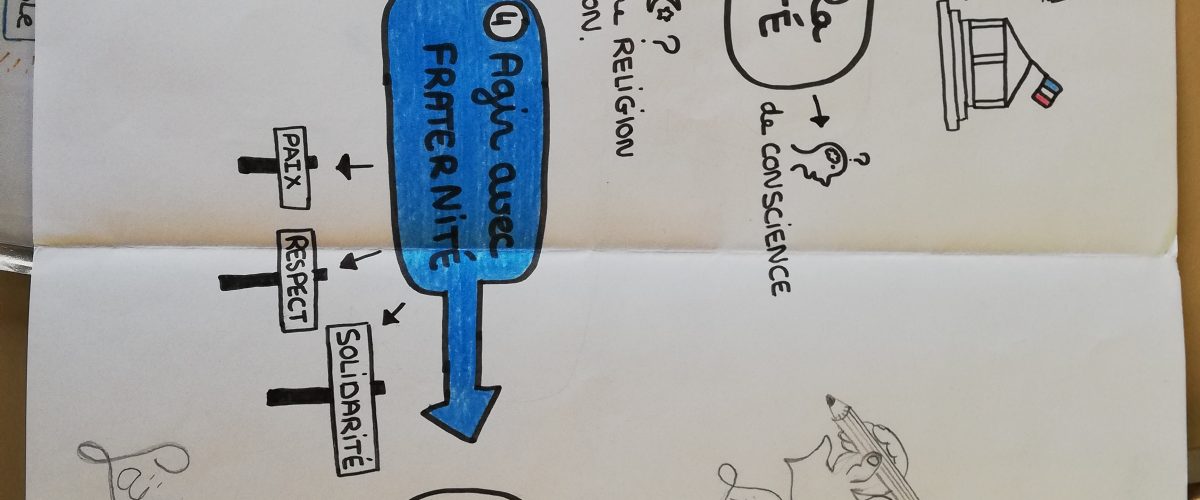 la
TÉ
?
de CONSCIENCE
?
RELIGION
ON.
4 Agir avec
FRATERNITÉ
PAIX
RESPECT
SOLIDARITÉ
Laï
le